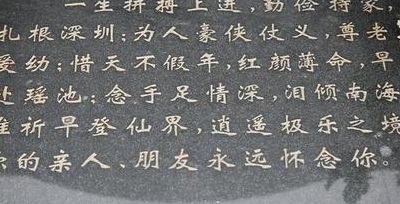 一生拼搏上进,勤俭持家,
扎根深圳;为人豪侠仗义,尊老
爱幼;惜天不假年,红颜薄命,早
赴瑶池;念手足情深,泪倾南海
惟祈早登仙界,逍遥极乐之境
你的亲人、朋友永远怀念你。